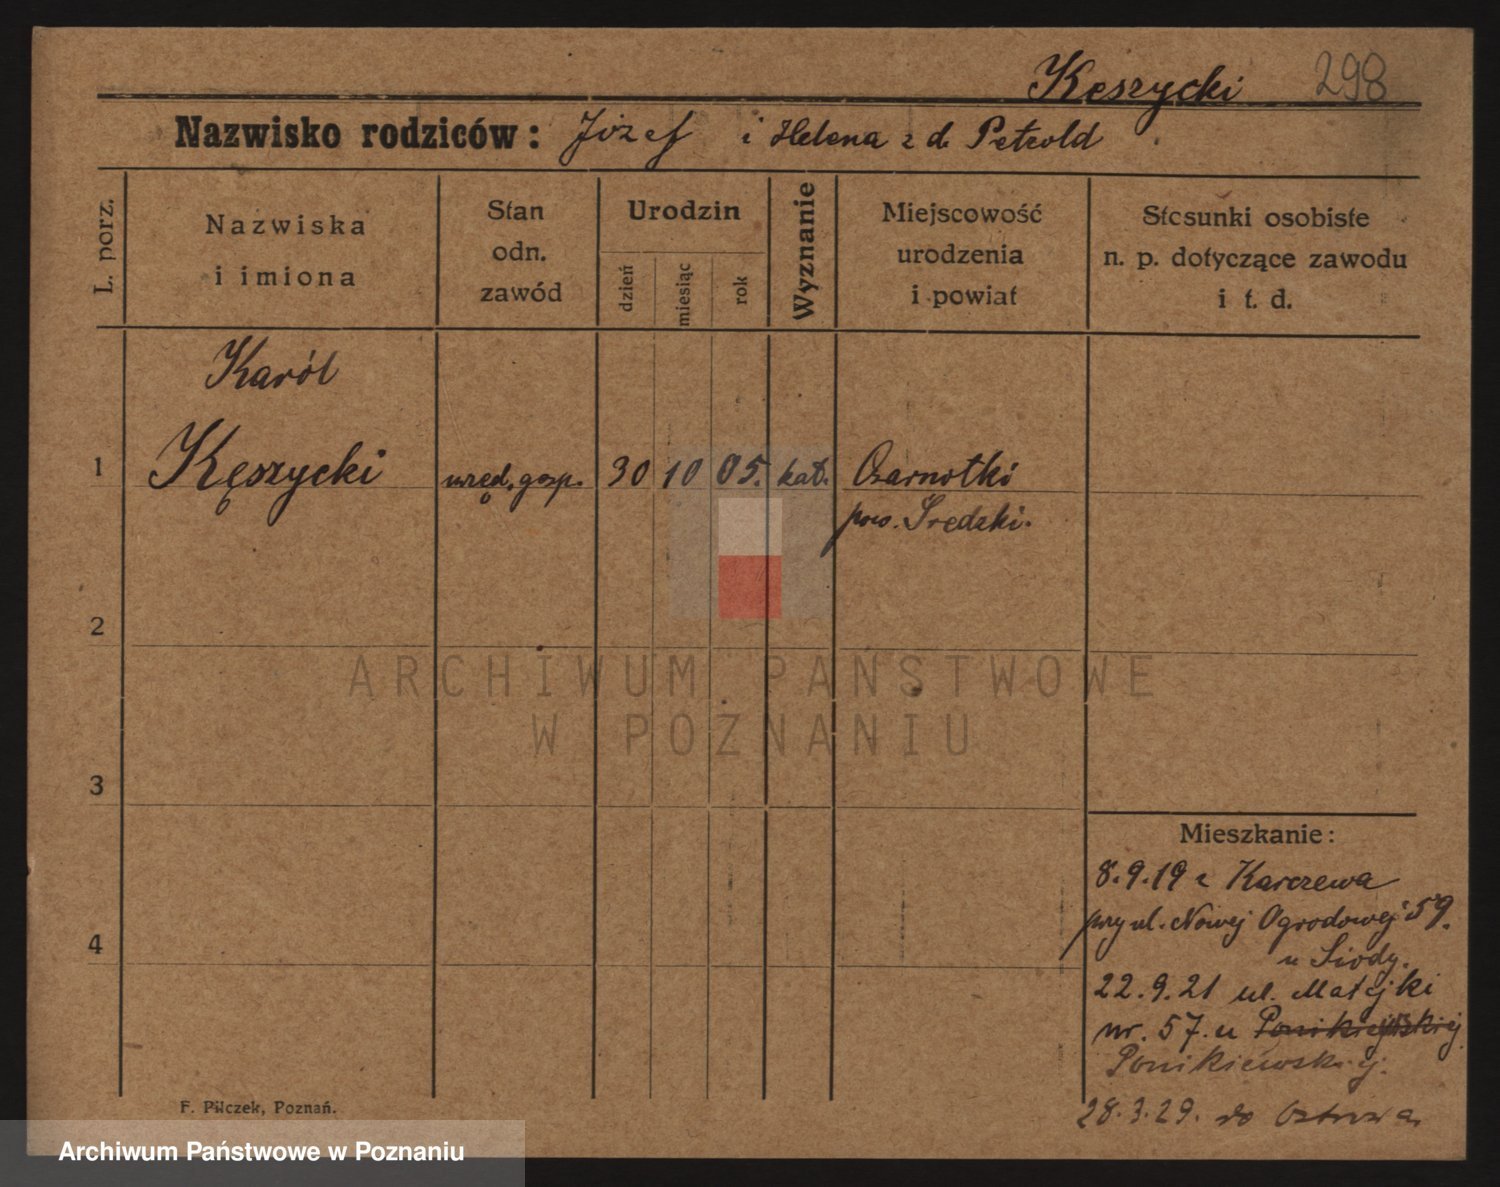 Kęszycki 298
Nazwisko rodziców: Józef i Helena z d. Petzold
L. porz.
Nazwiska
i imiona
Stan
odn.
zawód
Urodzin
dzień
miesiąc
rok
Wyznanie
Miejscowość
urodzenia
i powiat
Stosunki osobiste
n. p. dotyczące zawodu
i t. d.
Karól
1 Kęszycki urzęd. gosp. 30 10 05. kat. Czarnotki
pow. Średzki.
2
ARCHIWUM PAŃSTWOWE
W POZNANIU
3
Mieszkanie:
8.9.19 z Karczewa
przy ul. Nowej Ogrodowej 59.
u Siody.
4
22.9.21 ul. Matejki
nr. 57. u Ponikiewskiej
Ponikiewskiej.
28.3.29. do
F. Pilczek, Poznań.
Archiwum Państwowe w Poznaniu